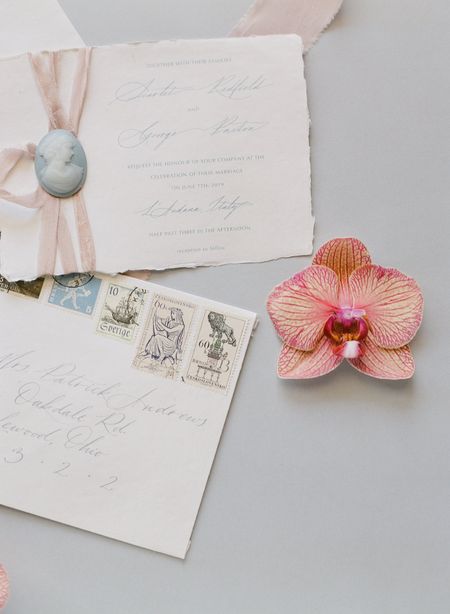 TOGETHER WITH THEIR FAMILIES
Scarlet Redfield
AND
George Paxton
REQUEST THE HONOUR OF YOUR COMPANY AT THE
CELEBRATION OF THEIR MARRIAGE
ON JUNE 7TH, 2019
Italy
HALF PAST THREE IN THE AFTERNOON
reception to follow
10
Sverige
60
ČESKOSLOVENSKO
60h
ČESKOSLOVENSKO
Mrs. Patrick Andrews
Oakdale Rd.
Ohio
3 · 2 · 2